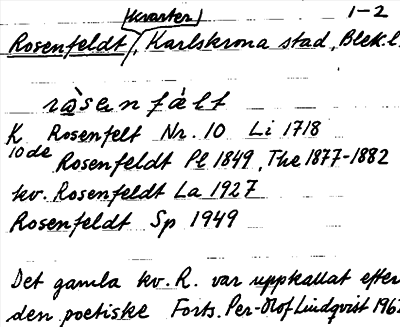 (kvarter) 1-2
Rosenfeldt, Karlskrona stad, Blek.l.
ròsenfält
K Rosenfelt Nr. 10 Li 1718
10de Rosenfeldt Pl 1849, The 1877-1882
kv. Rosenfeldt La 1927
Rosenfeldt Sp 1949
Det gamla kv. R. var uppkallat efter
den poetiske Forts. Per-Olof Lindqvist 1967